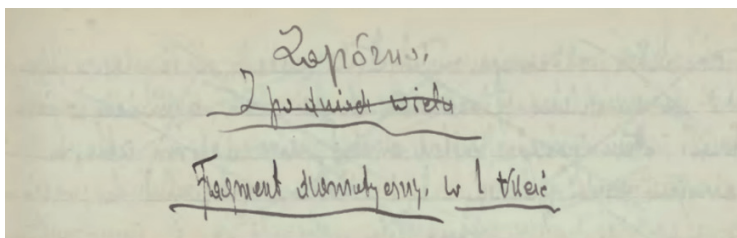 Zapóźno.
Z po śmiech wieku
Fragment dramatyczny. w 1 akcie